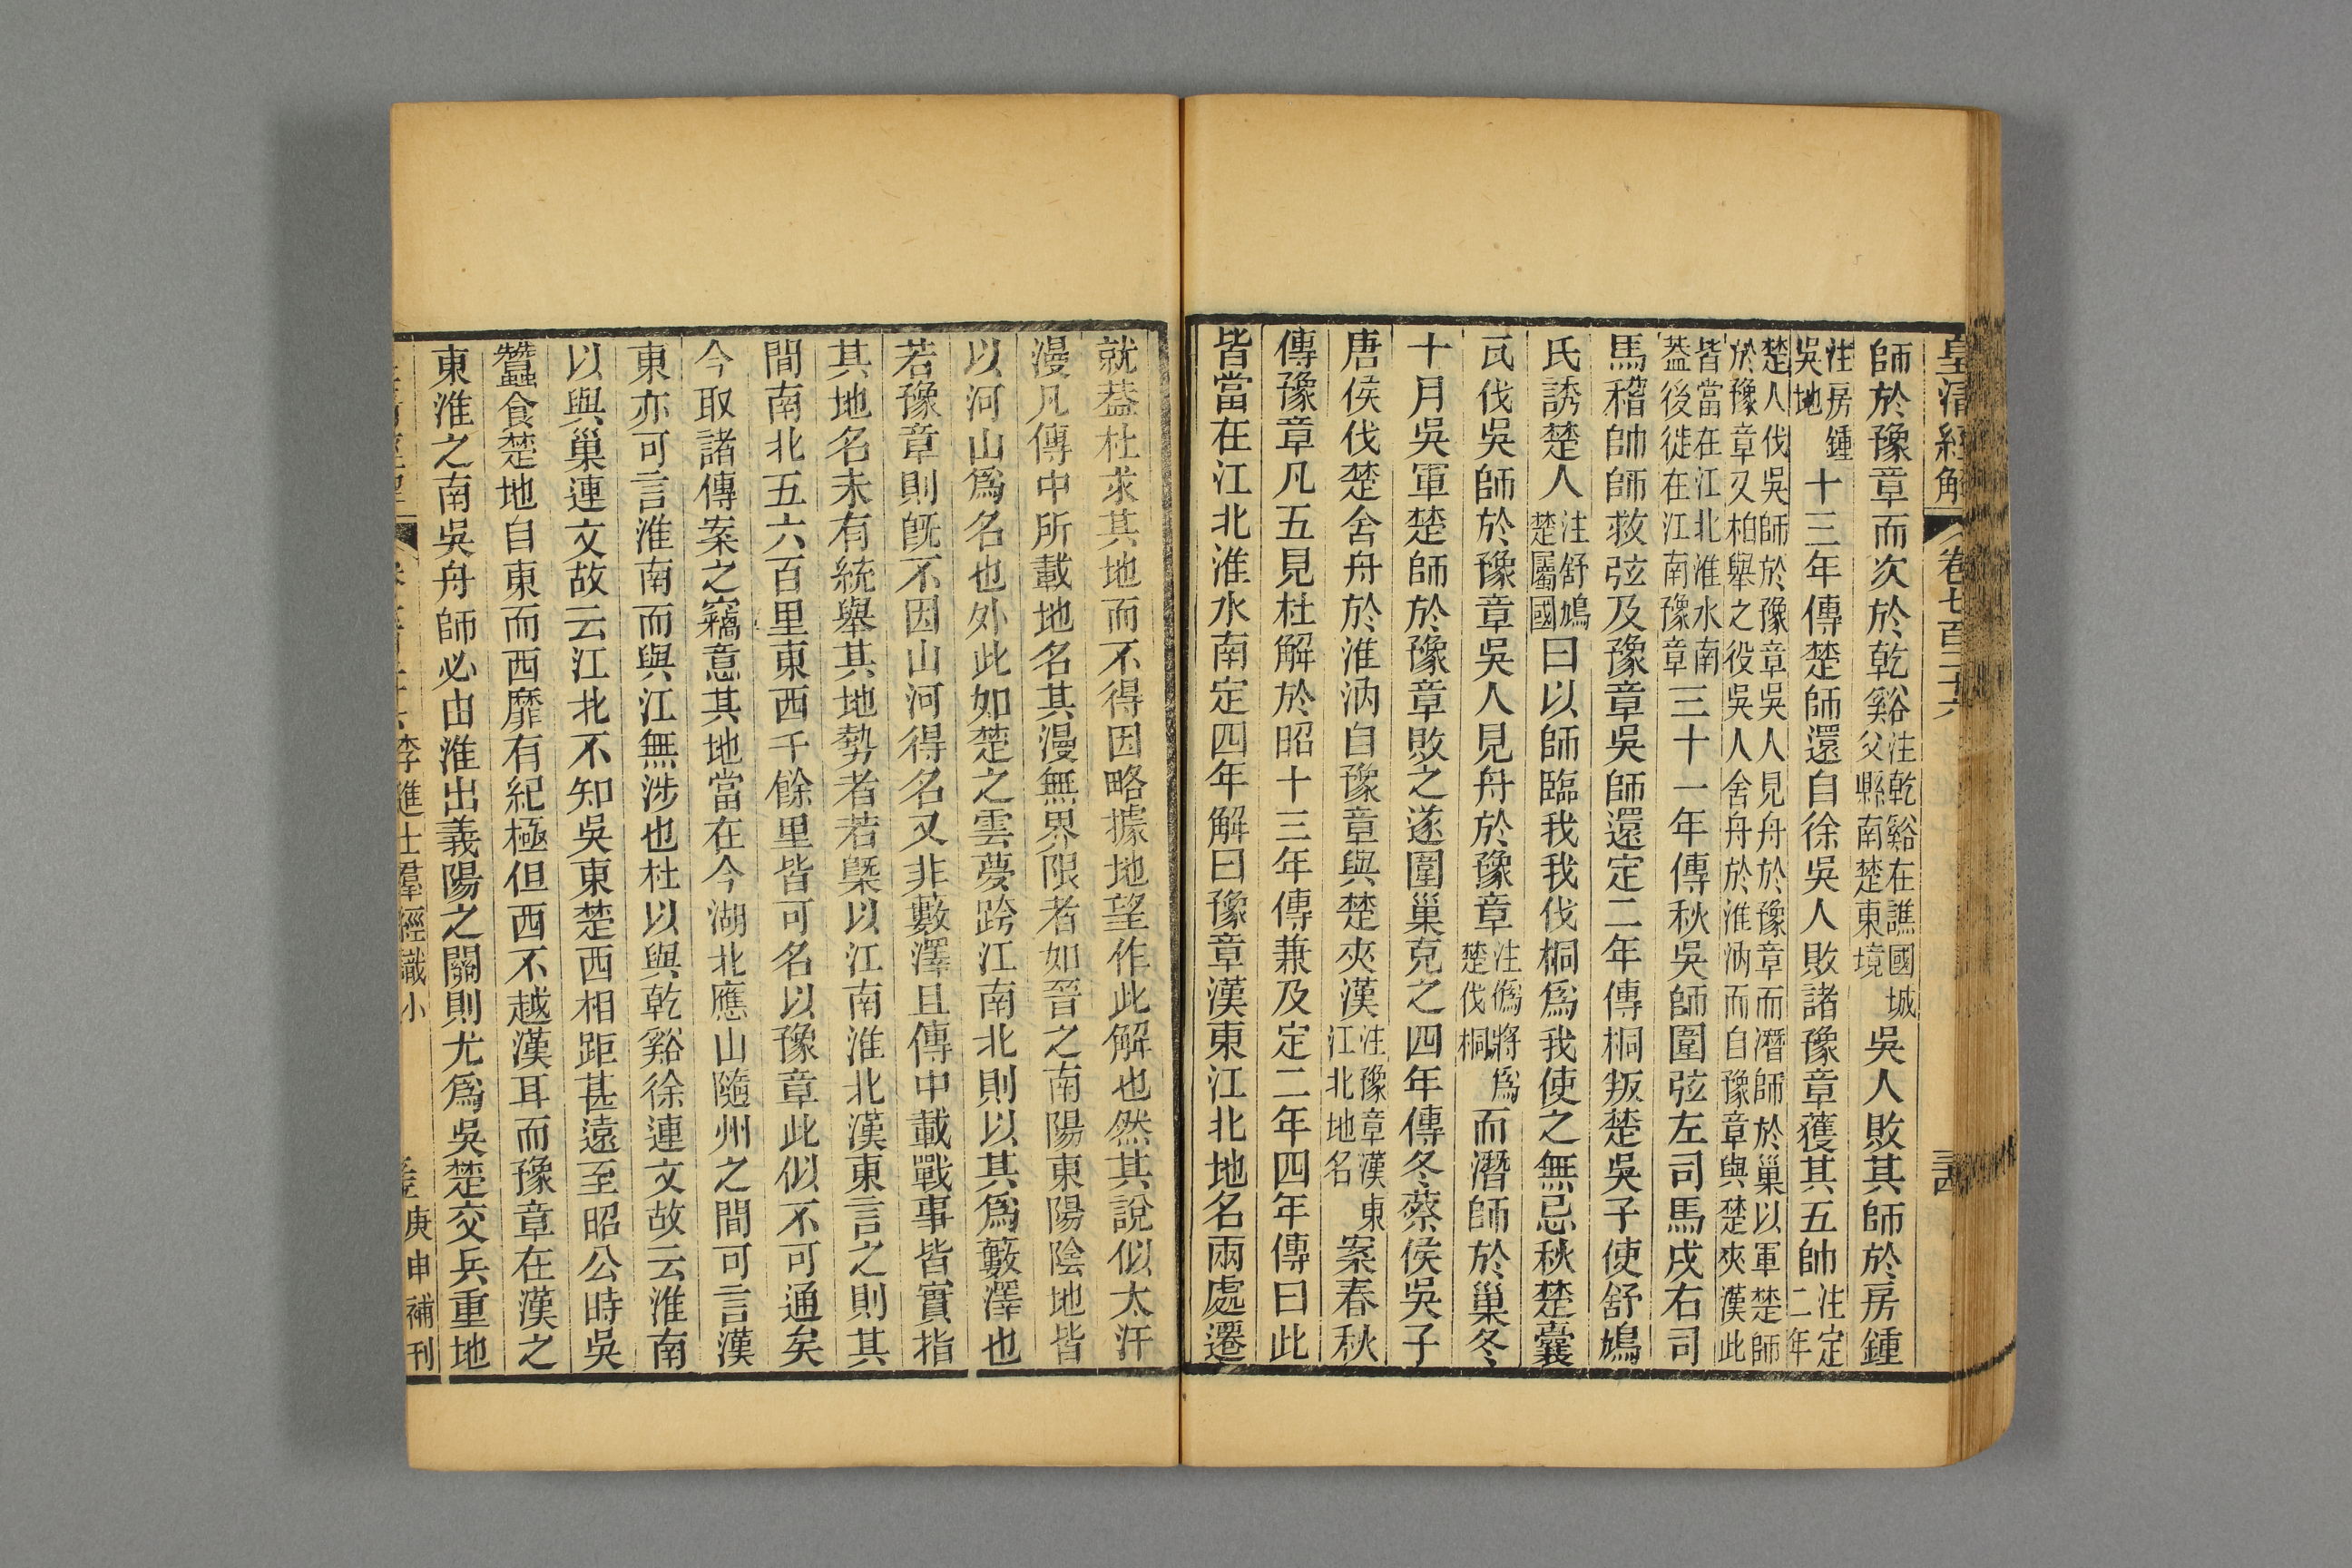 皇清經解 卷七百二十六
師於豫章而次於乾谿注乾谿在譙國城父縣南楚東境吳人敗其師於房鍾
注房鍾吳地十三年傳楚師還自徐吳人敗諸豫章獲其五帥注定二年
楚人伐吳師於豫章吳人見舟於豫章而潛師於巢以軍楚師於豫章又柏舉之役吳人舍舟於淮汭而自豫章與楚夾漢此
皆當在江北淮水南蓋後徙在江南豫章三十一年傳秋吳師圍弦左司馬戌右司
馬稽帥師救弦及豫章吳師還定二年傳桐叛楚吳子使舒鳩
氏誘楚人注舒鳩楚屬國曰以師臨我我伐桐爲我使之無忌秋楚囊
瓦伐吳師於豫章吳人見舟於豫章注僞將爲楚伐桐而潛師於巢冬
十月吳軍楚師於豫章敗之遂圍巢克之四年傳冬蔡侯吳子
唐侯伐楚舍舟於淮汭自豫章與楚夾漢注豫章漢東江北地名案春秋
傳豫章凡五見杜解於昭十三年傳兼及定二年四年傳曰此
皆當在江北淮水南定四年解曰豫章漢東江北地名兩處遷
就葢杜求其地而不得因略據地望作此解也然其說似太汗
漫凡傳中所載地名其漫無界限者如晉之南陽東陽陰地皆
以河山爲名也外此如楚之雲夢跨江南北則以其爲藪澤也
若豫章則旣不因山河得名又非藪澤且傳中載戰事皆實指
其地名未有統舉其地勢者若槩以江南淮北漢東言之則其
間南北五六百里東西千餘里皆可名以豫章此似不可通矣
今取諸傳案之竊意其地當在今湖北應山隨州之間可言漢
東亦可言淮南而與江無涉也杜以與乾谿徐連文故云淮南
以與巢連文故云江北不知吳東楚西相距甚遠至昭公時吳
蠶食楚地自東而西靡有紀極但西不越漢耳而豫章在漢之
東淮之南吳舟師必由淮出義陽之關則尤爲吳楚交兵重地
李進士羣經識小 庚申補刊